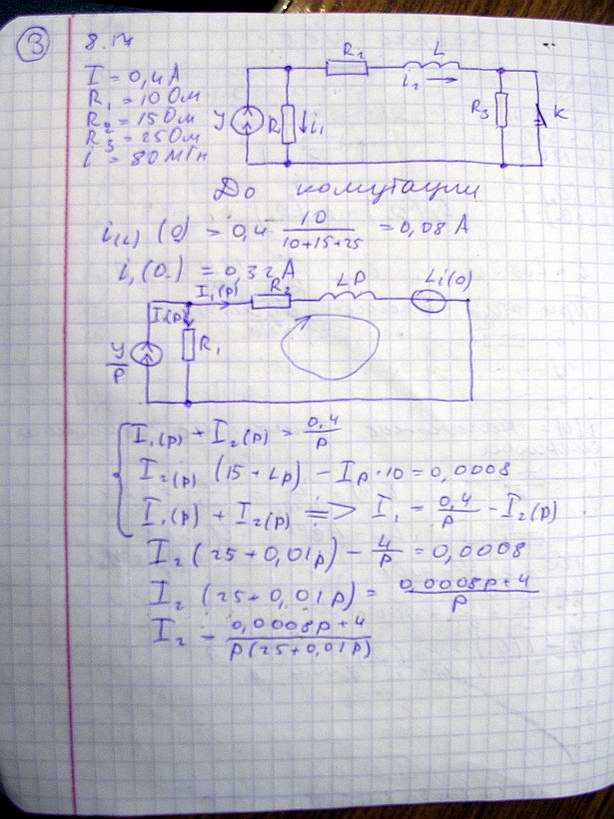 3 8.14
I = 0,4 А
R₁ = 10 Ом
R₂ = 15 Ом
R₃ = 25 Ом
R₂ L
i₂
R₁ ↓ i₁
R₃ K
До комутации
(0) = 0,4 10/(10+15+25) = 0,08 А
i₁(0₋) = 0,32 А
I₁(p) R₂ Lp Li(0)
R₁
I₁(p) + I₂(p) = 0,4/p
I₂(p) (15 + Lp) − Ip·10 = 0,0008
I₁(p) + I₂(p) => I₁ = 0,4/p − I₂(p)
I₂ (25 + 0,01p) − 4/p = 0,0008
I₂ (25 + 0,01p) = (0,0008p+4)/p
I₂ = (0,0008p+4)/(p(25+0,01p))